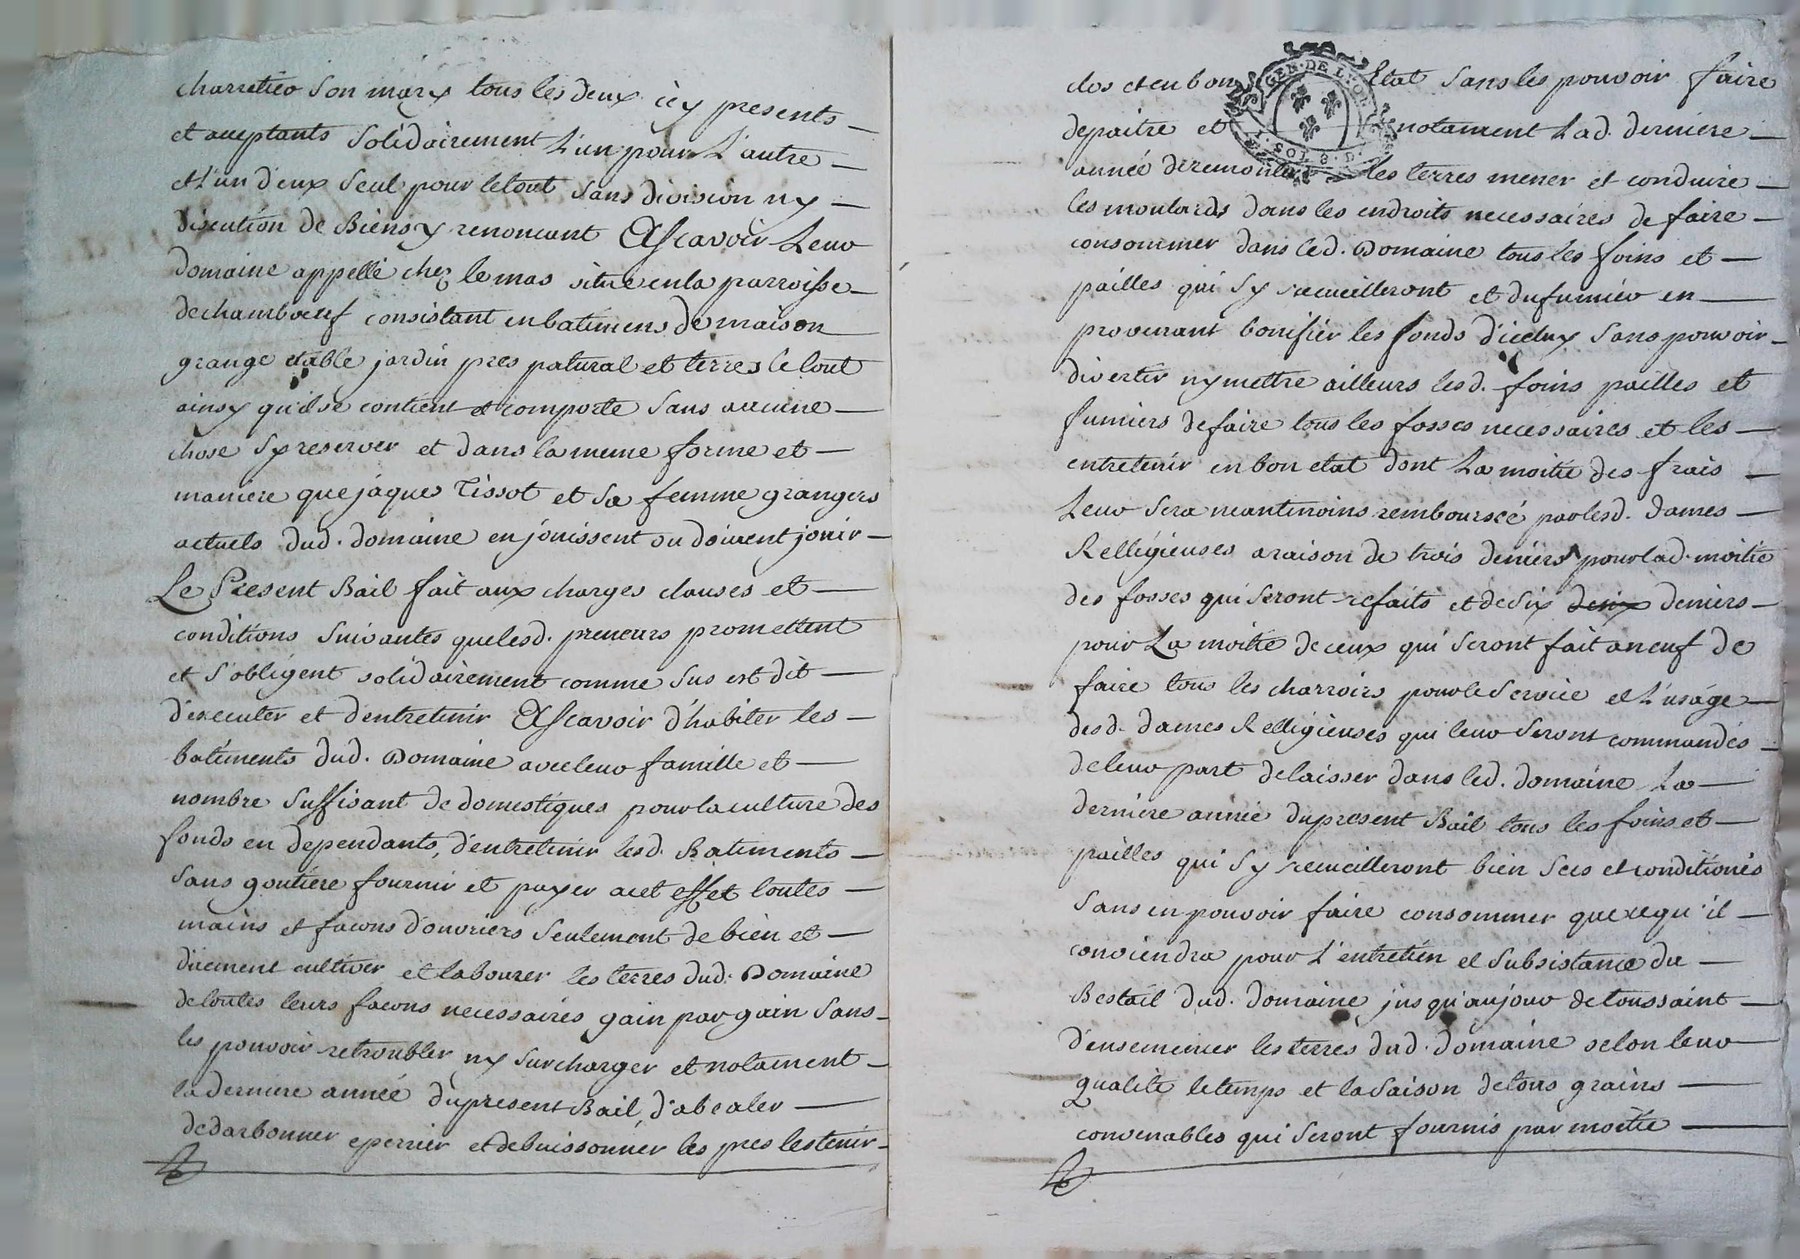 charretier son mary tous les deux icy presents
et acceptants solidairement L'un pour L'autre
et L'un d'eux seul pour le tout sans division ny
discution de Biens y renoncant Ascavoir Leur
domaine appellé chez le mas situé en la parroisse
de chamboeuf consistant en batimens de maison
grange etable jardin pres patural et terres le tout
ainsy qu'il se contient et comporte sans aucune
chose sy reserver et dans la meme forme et
maniere que jaque Tissot et sa femme grangers
actuels dud. domaine en jouissent ou doivent jouir
Le Present Bail fait aux charges clauses et
conditions suivantes que lesd. preneurs promettent
et s'obligent solidairement comme sus est dit
d'executer et d'entretenir Ascavoir d'habiter les
batiments dud. Domaine avec leur famille et
nombre suffisant de domestiques pour la culture des
fonds en dependants, d'entretenir lesd. Batiments
sans goutiere fournir et payer a cet effet toutes
mains et facons d'ouvriers seulement de bien et
duement cultiver et labourer les terres dud. Domaine
de toutes leurs facons necessaires gain par gain sans
les pouvoir retroubler ny surcharger et notament
la derniere année du present Bail, d'abealer
dedarbonner eperrier et debuissonner les pres les tenir
clos et en bon Etat sans les pouvoir faire
depaitre et notament Lad. derniere
année de remonter les terres mener et conduire
les moulards dans les endroits necessaires de faire
consommer dans led. Domaine tous les foins et
pailles qui sy recueilleront et du fumier en
provenant bonifier les fonds d'icelux sans pouvoir
divertir ny mettre ailleurs lesd. foins pailles et
fumiers de faire tous les fosses necessaires et les
entretenir en bon etat dont La moitié des frais
Leur sera neantmoins remboursée par lesd. dames
Relligieuses a raison de trois deniers pour lad. moitié
des fosses qui seront refaits et de six deux deniers
pour La moitié de ceux qui seront fait a neuf de
faire tous les charroirs pour le service et L'usage
desd. dames Relligieuses qui leur seront commandés
de leur part de laisser dans led. domaine La
derniere année du present Bail tous les foins et
pailles qui sy recueilleront bien secs et conditionés
sans en pouvoir faire consommer que ce qu'il
conviendra pour L'entretien et subsistance du
Bestail dud. domaine jusqu'au jour de toussaint
d'ensemencer les terres dud. domaine selon leur
qualité le temps et la saison de tous grains
convenables qui seront fournis par moitié